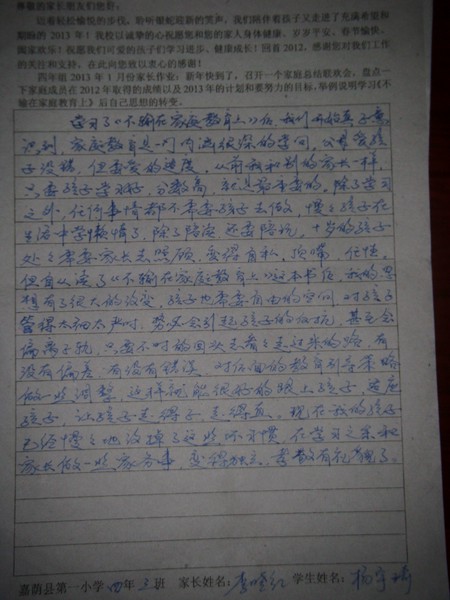 尊敬的家长朋友们您好:
迈着轻松愉悦的步伐,聆听银蛇迎新的笑声,我们陪伴着孩子又走进了充满希望和
期盼的2013年!我校以诚挚的心祝愿您和您的家人身体健康、岁岁平安、春节愉快、
阖家欢乐!祝愿我们可爱的孩子们学习进步、健康成长!回首2012,感谢您对我们工作
的关注和支持,在此向您致以衷心的感谢!
四年组2013年1月份家长作业:新年快到了,召开一个家庭总结联欢会。盘点一
下家庭成员在2012年取得的成绩以及2013年的计划和要努力的目标,举例说明学习《不
输在家庭教育上》后自己思想的转变。
学习了《不输在家庭教育上》后,我们才真正意
识到,家庭教育是一门内涵很深的学问,父母爱孩
子没错,但要爱的适度,从前我和别的家长一样,
只要孩子学习好,分数高,就是最重要的,除了学习
之外,任何事情都不需要孩子去做,慢慢孩子在
生活中学懒惰了,除了陪读还要陪玩,十岁的孩子
处处需要家长去照顾,变得自私,顶嘴,任性,
但自从读了《不输在家庭教育上》这本书后,我的思
想有了很大的改变,孩子也需要自由的空间,对孩子
管得太细太严时,势必会引起孩子的反抗,甚至会
偏离子轨,只要不时的回头走看看走过来的路,有
没有偏差,有没有错误,对后面的教育引导策略
做一些调整,这样就能很好的跟上孩子,适应
孩子,让孩子走得子,走得直。现在我的孩子
已经慢慢地改掉了这些坏习惯,在学习之余和
家长做一些家务事,变得独立,
嘉荫县第一小学 四年 3 班 家长姓名: 李 学生姓名: 杨宇